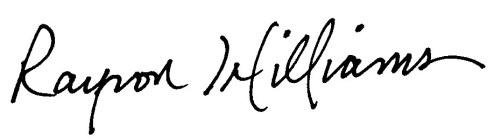 Raynon Williams